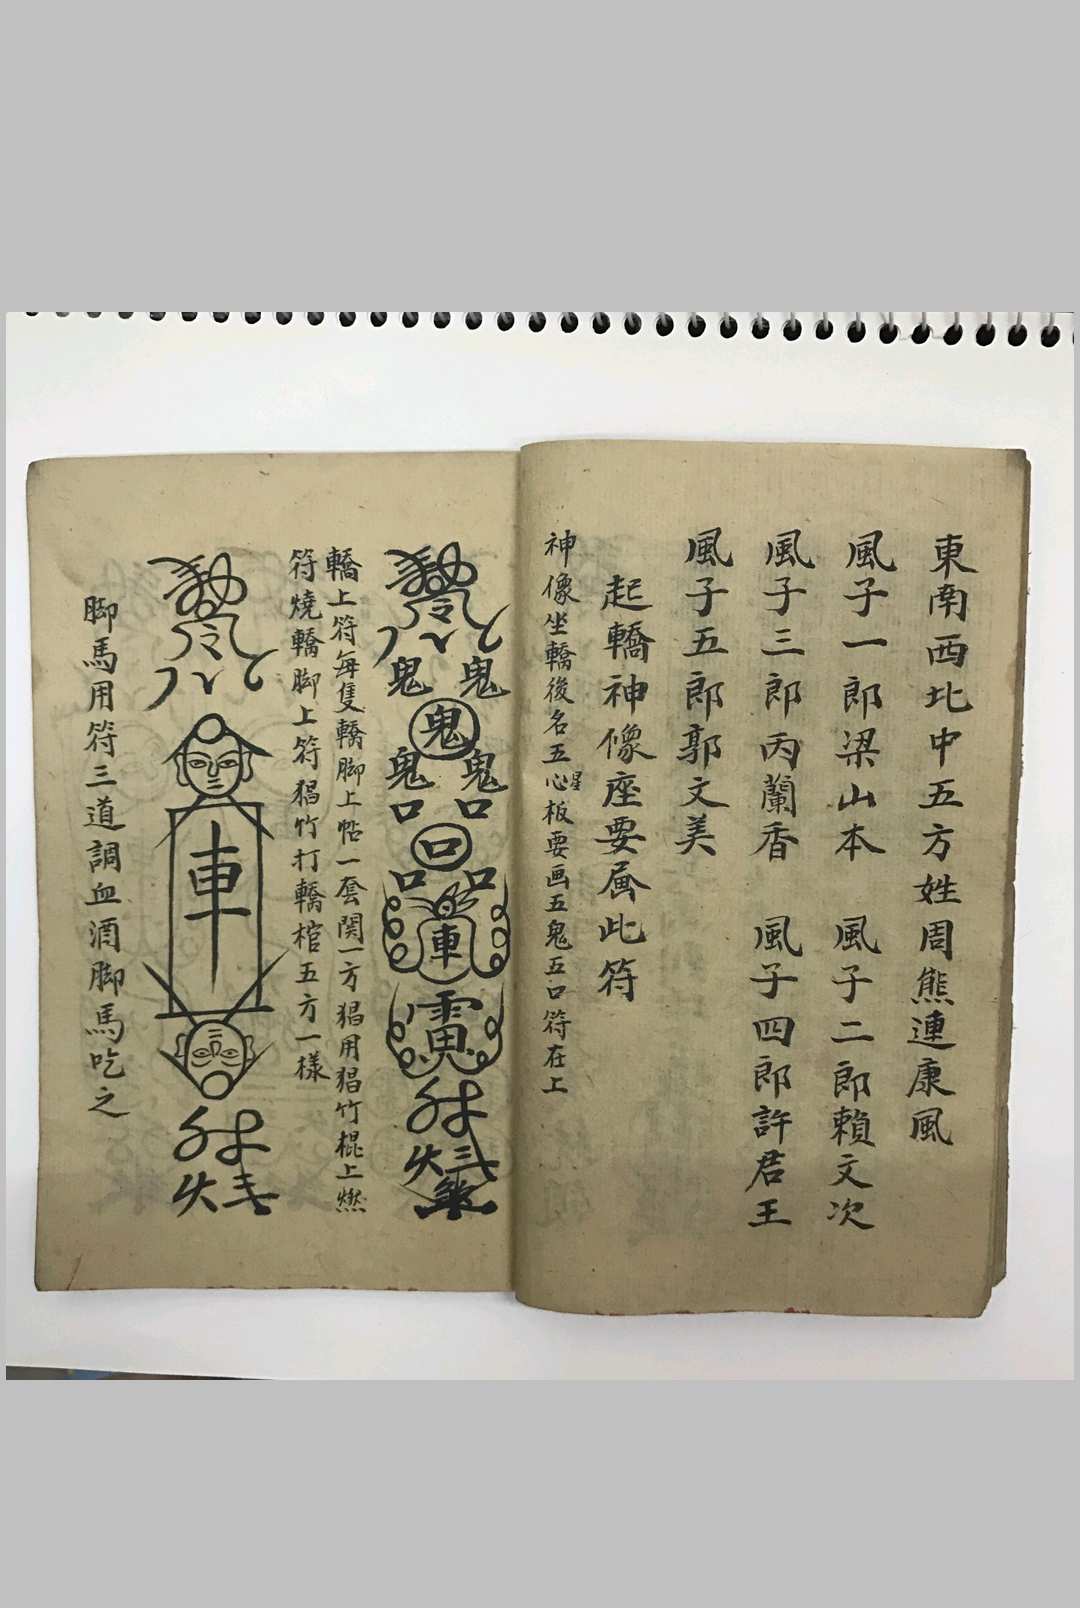 東南西北中五方姓周熊連康風
風子一郎梁山本　風子二郎賴文次
風子三郎丙蘭香　風子四郎許君王
風子五郎郭文美
起轎神像座要畐此符
神像坐轎後名五心星板要画五鬼五口符在上
鬼 鬼
鬼
鬼 鬼
口 口
口
口 口
車
轎上符每隻轎脚上帖一套関一方猖用猖竹棍上燃
符燒轎脚上符猖竹打轎棺五方一樣
車
脚馬用符三道調血酒脚馬吃之